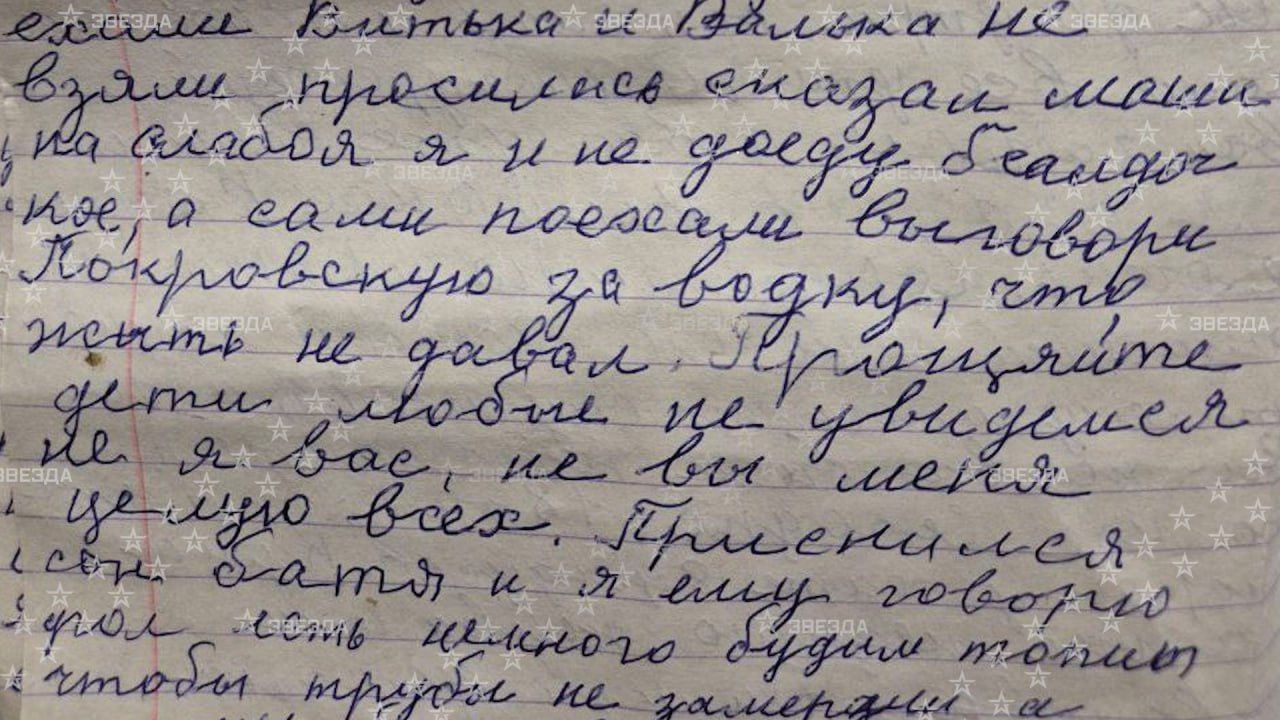 ехали Витька и Валька не
взяли просились сказал маши
на слабоя я и не доеду
кое, а сами поехали выговори
Покровскую за водку, что
жыть не давал. Прощяйте
дети любые не увидемся
не я вас, не вы меня
целую всех. Приснился
сон батя и я ему говорю
есть немного будим топит
чтобы трубы не замерзли а
ЗВЕЗДА